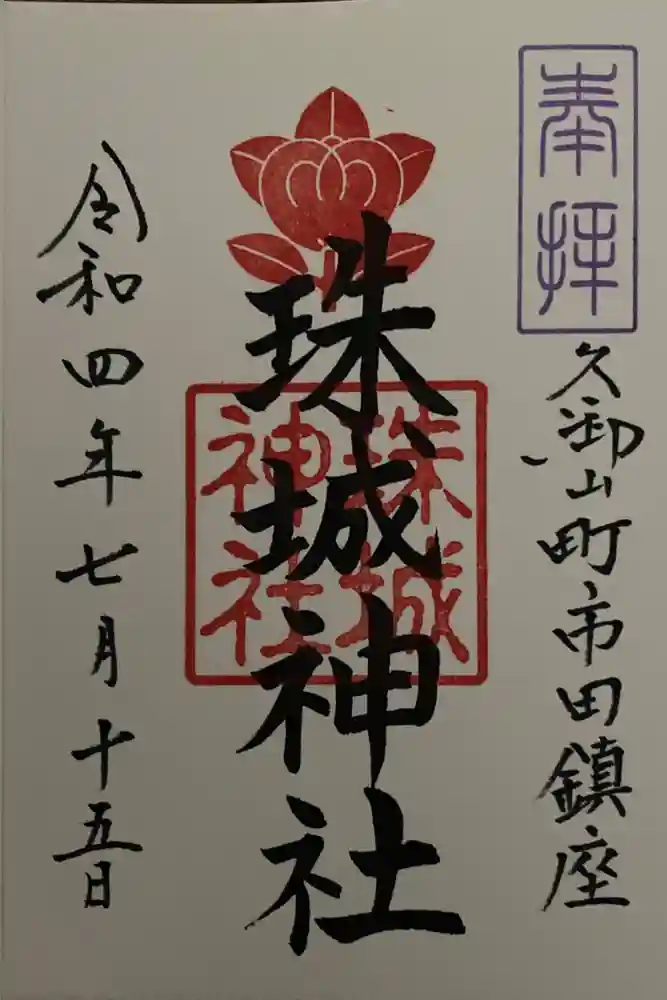 奉拝
久御山町市田鎮座
珠城神社
珠城
神社
令和四年七月十五日